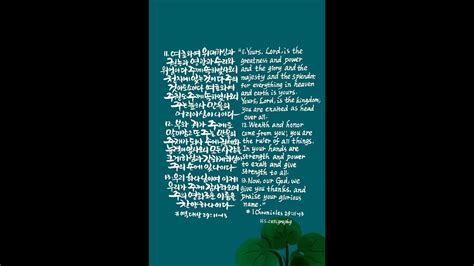 11. 여호와여 위대하심과
권능과 영광과 승리와
위엄이 다 주께 속하였사오니
천지에 있는 것이 다 주의
것이로소이다 여호와여
주권도 주께 속하였사오니
주는 높으사 만물의
머리이심이니이다
12. 부와 귀가 주께로
말미암고 또 주는 만물의
주재가 되사 손에 권세와
능력이 있사오니 모든 사람을
크게 하심과 강하게 하심이
주의 손에 있나이다
13. 우리 하나님이여 이제
우리가 주께 감사하오며
주의 영화로운 이름을
찬양하나이다
#역대상 29:11-13
11. Yours, Lord, is the
greatness and power
and the glory and the
majesty and the splendor,
for everything in heaven
and earth is yours.
Yours, Lord, is the kingdom;
you are exalted as head
over all.
12. Wealth and honor
come from you; you are
the ruler of all things.
In your hands are
strength and power
to exalt and give
strength to all.
13. Now, our God, we
give you thanks, and
praise your glorious
name.
# 1 Chronicles 29:11-13
HS. calligraphy